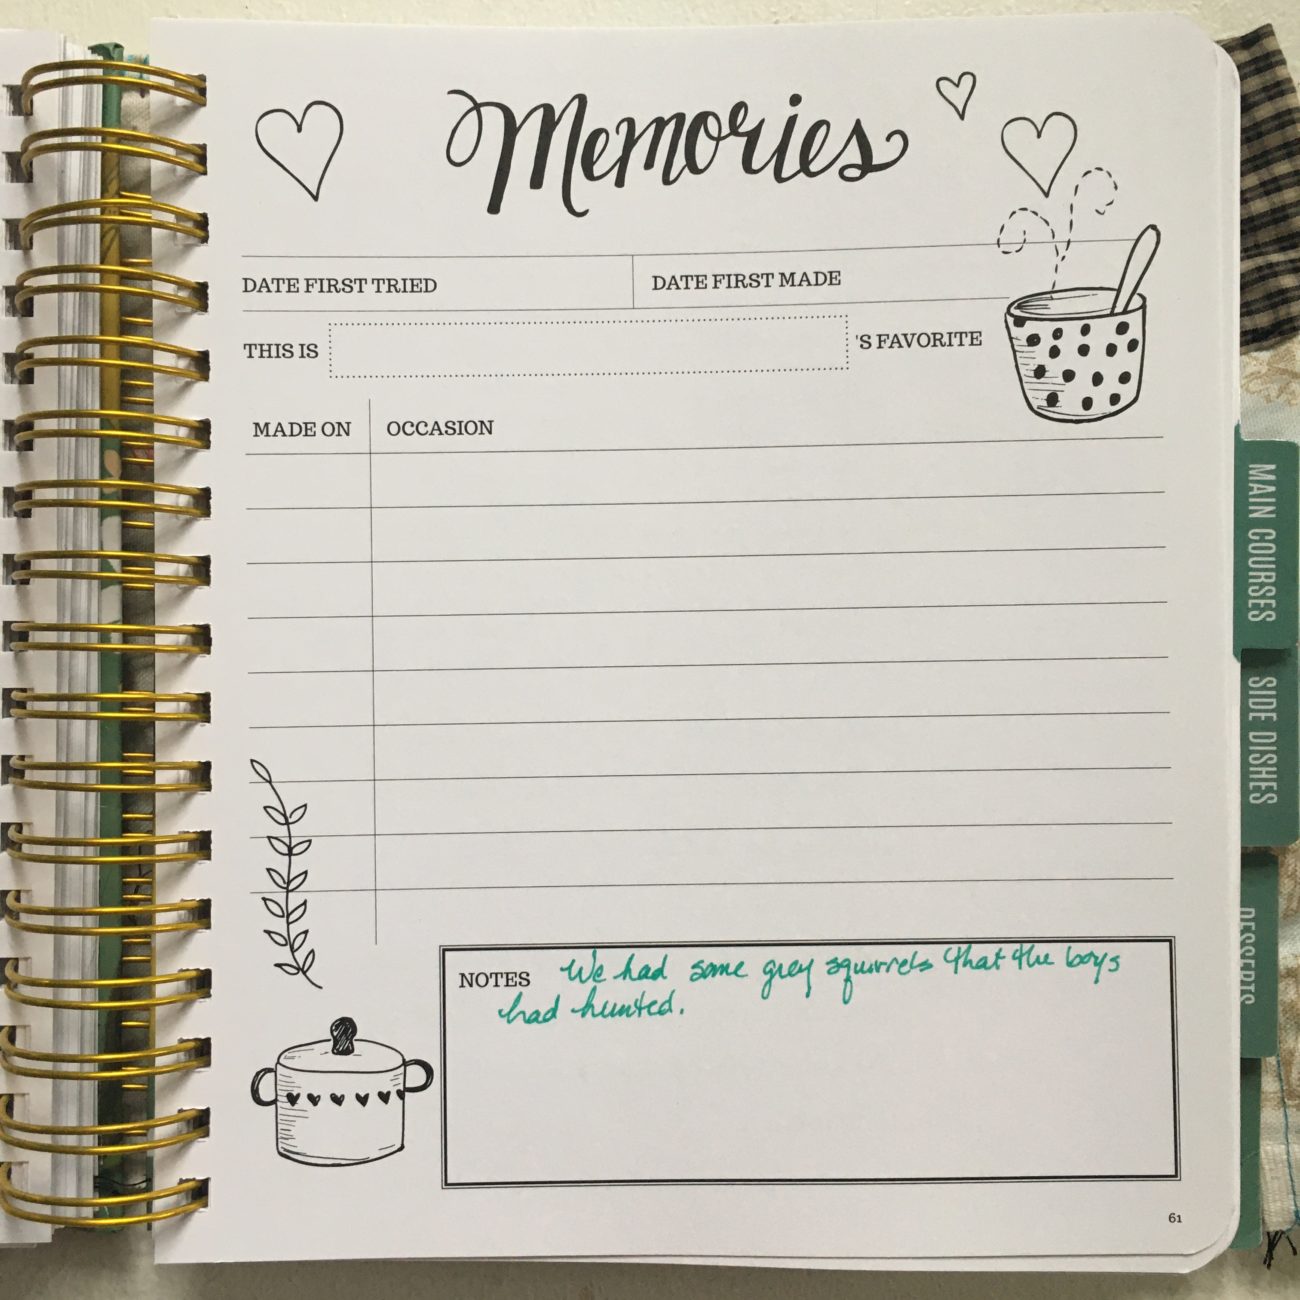 Memories
DATE FIRST TRIED
DATE FIRST MADE
THIS IS 'S FAVORITE
MADE ON
OCCASION
NOTES We had some grey squirrels that the boys
had hunted.
61
MAIN COURSES
SIDE DISHES
DESSERTS